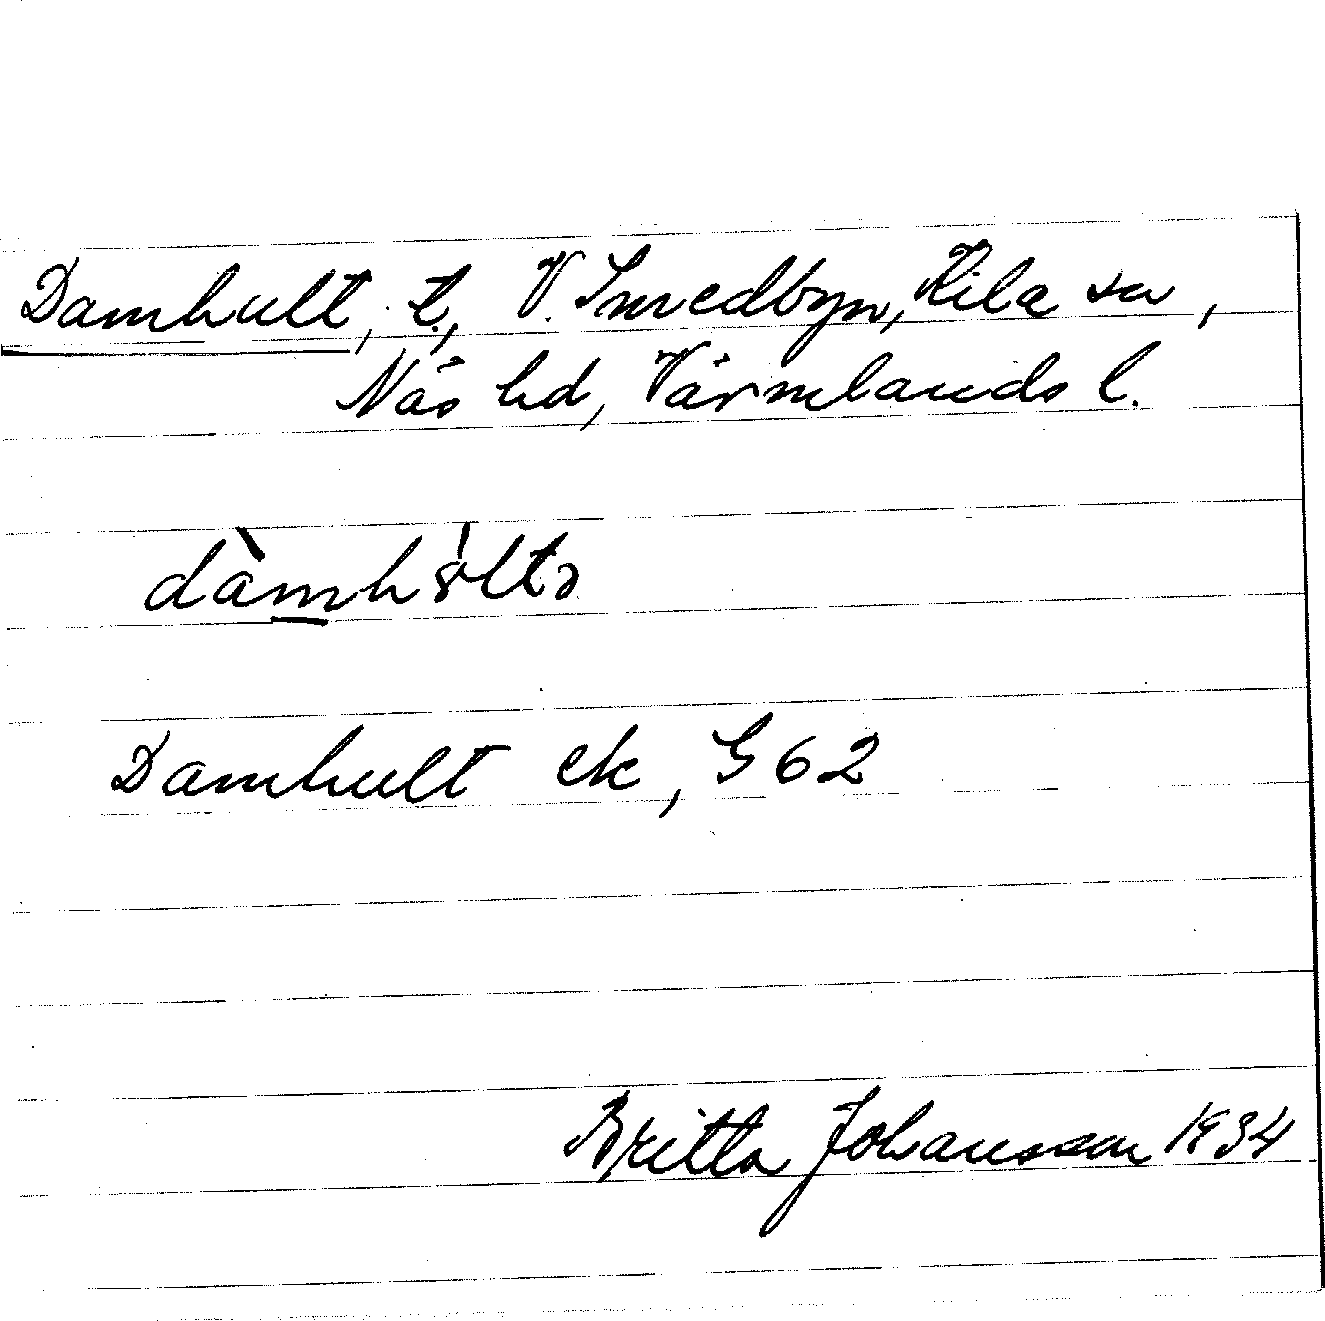 Damhult, t., V. Smedbyn, Kila sn,
Näs hd, Värmlands l.
Damhult ek, G 62
Britta Johansson 1934